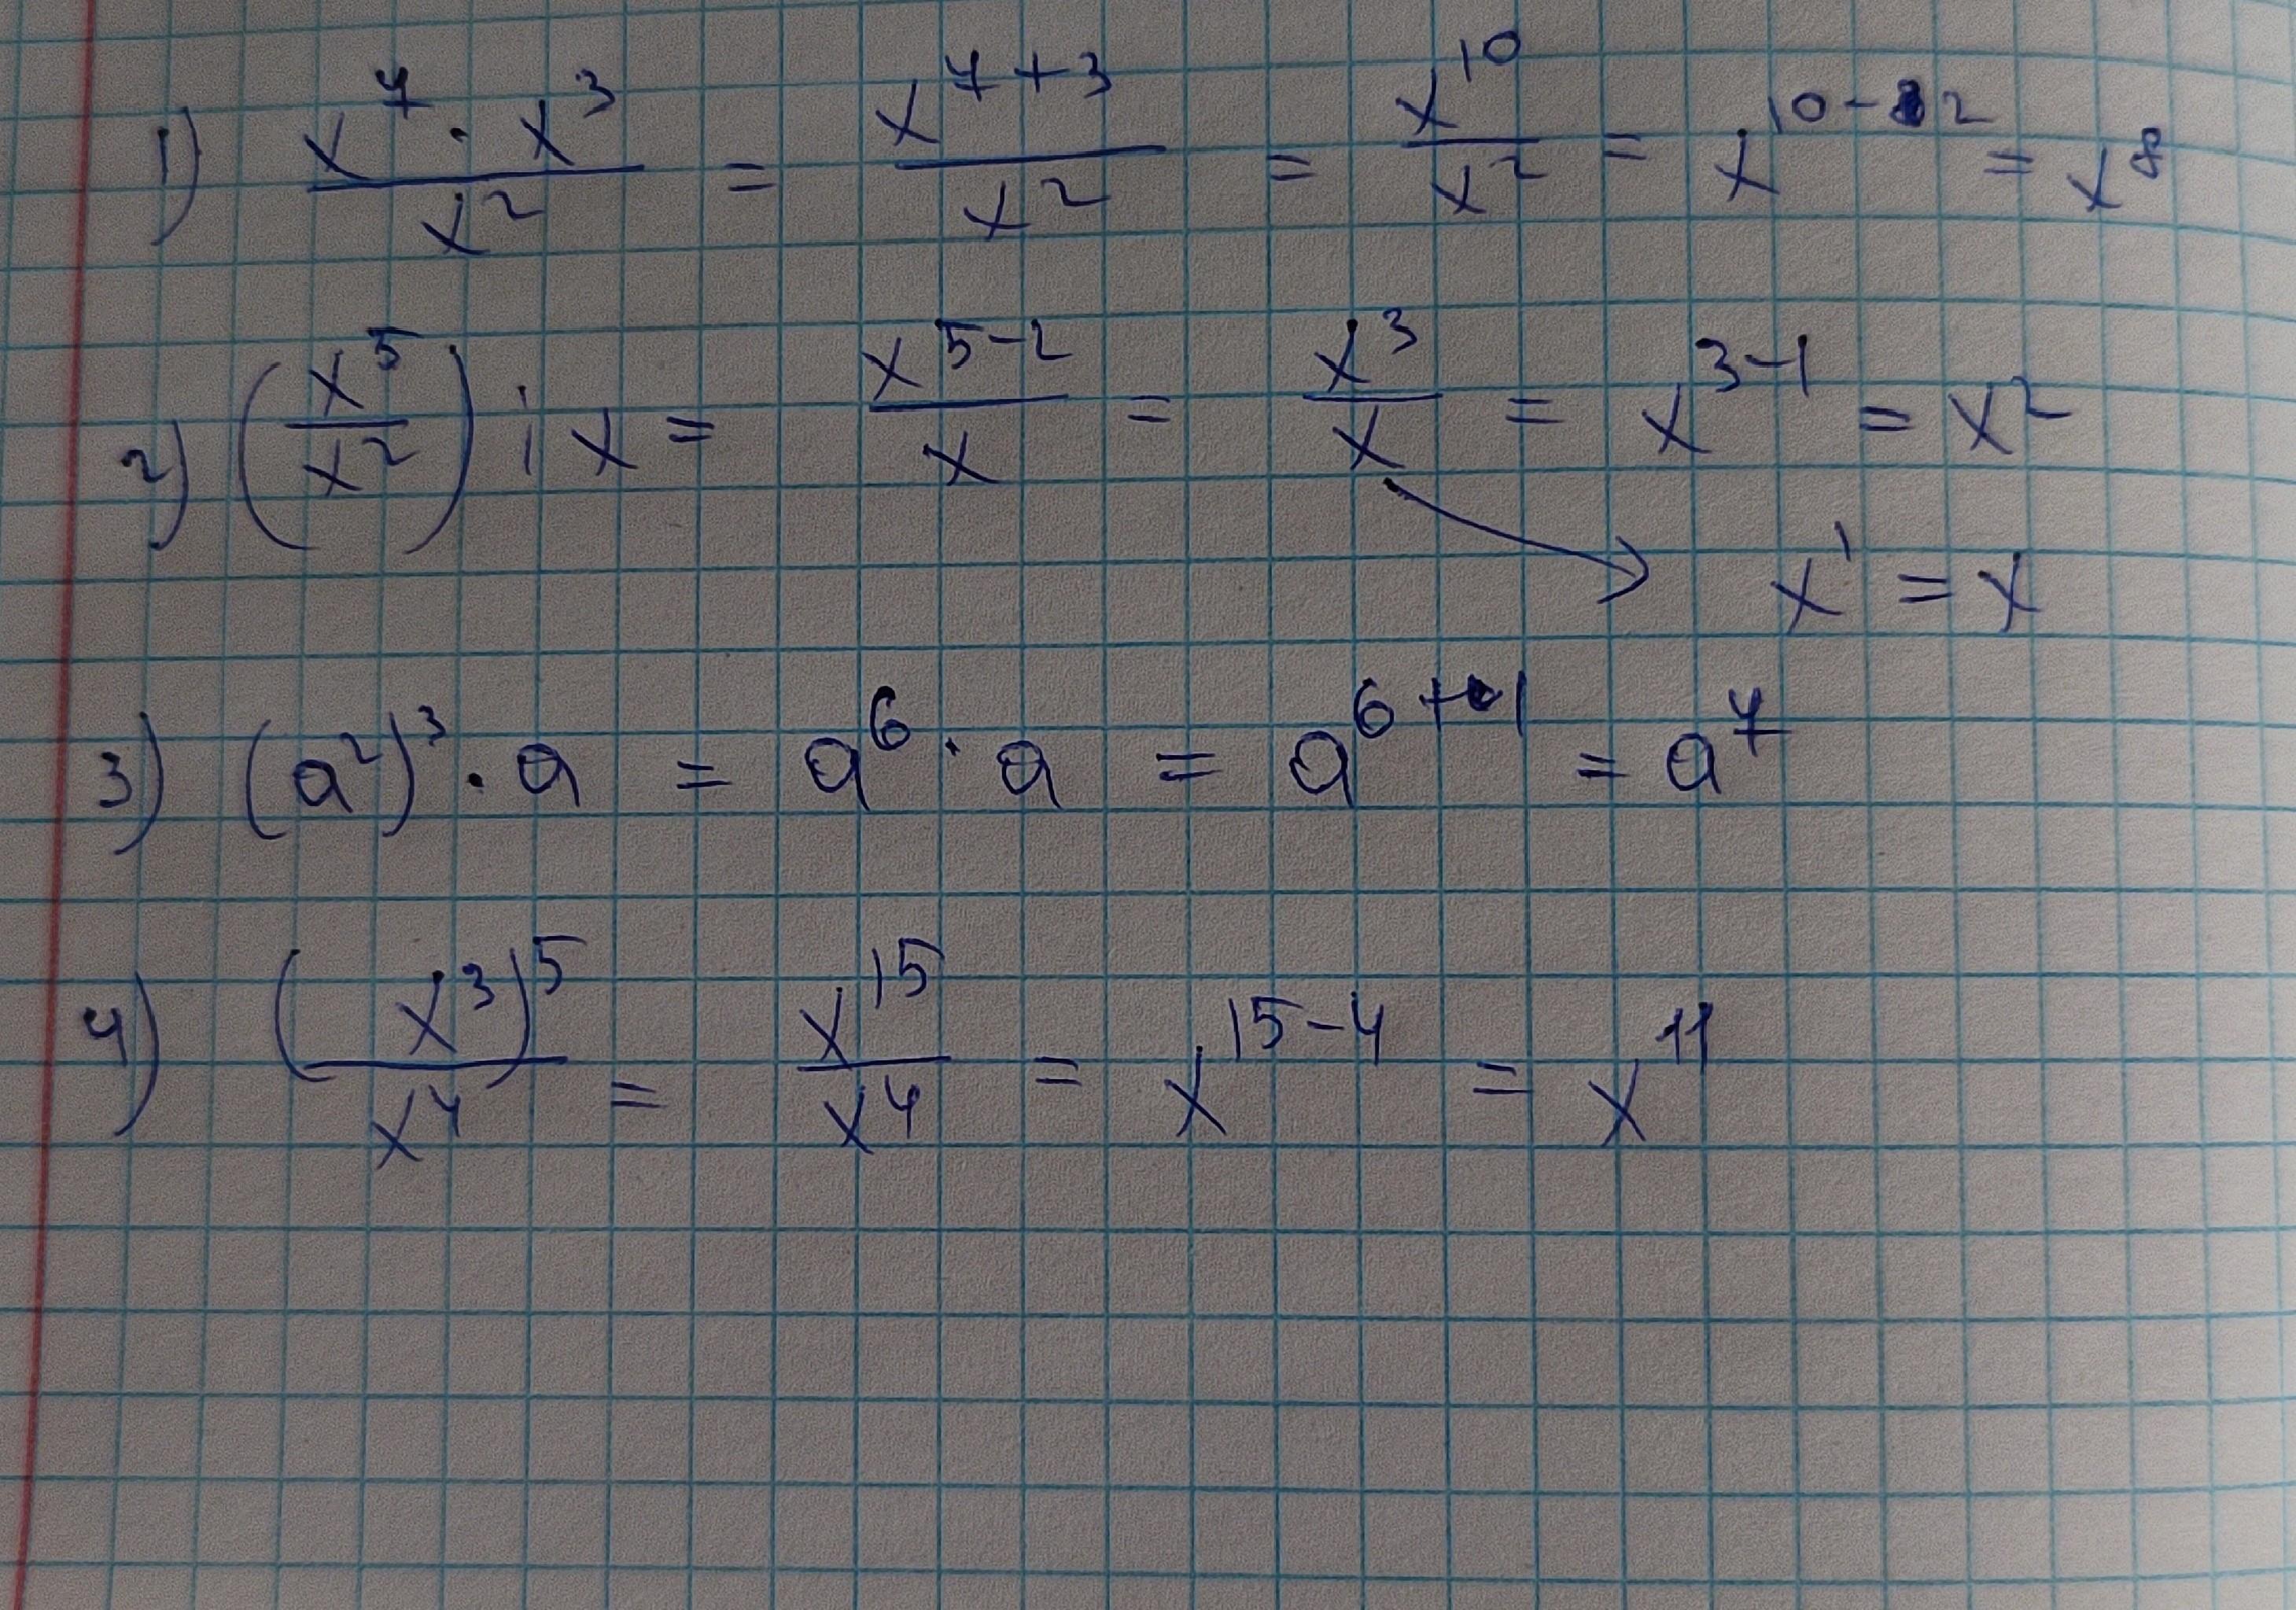 1) \frac{x^7 \cdot x^3}{x^2} = \frac{x^{7+3}}{x^2} = \frac{x^{10}}{x^2} = x^{10-2} = x^8
2) \left(\frac{x^5}{x^2}\right) : x = \frac{x^{5-2}}{x} = \frac{x^3}{x} = x^{3-1} = x^2
→ x^1 = x
3) (a^2)^3 \cdot a = a^6 \cdot a = a^{6+1} = a^7
4) \frac{(x^3)^5}{x^4} = \frac{x^{15}}{x^4} = x^{15-4} = x^{11}